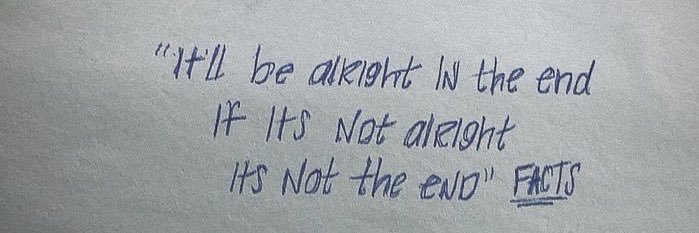 "It'll be alright IN the end
If Its Not alright
Its Not the eND" FACTS